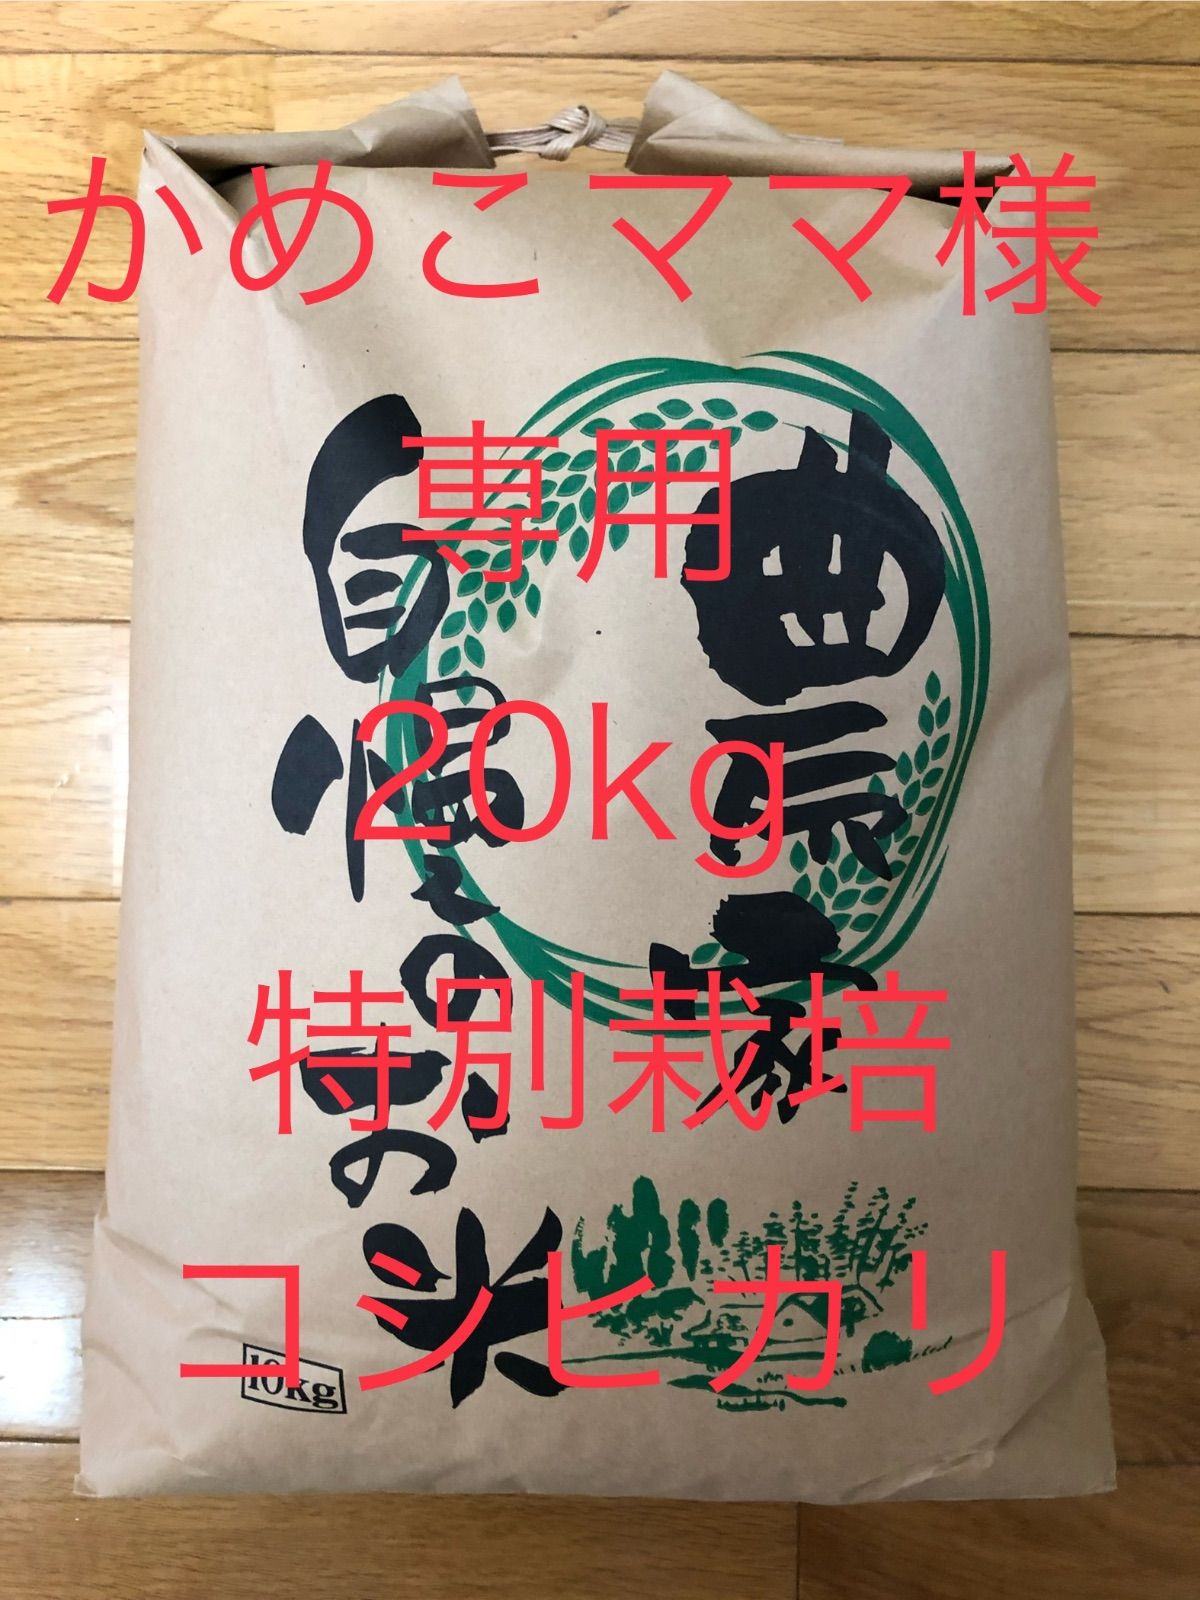 かめこママ様
専用
20kg
特別栽培
コシヒカリ
農家
自慢の
米
10kg